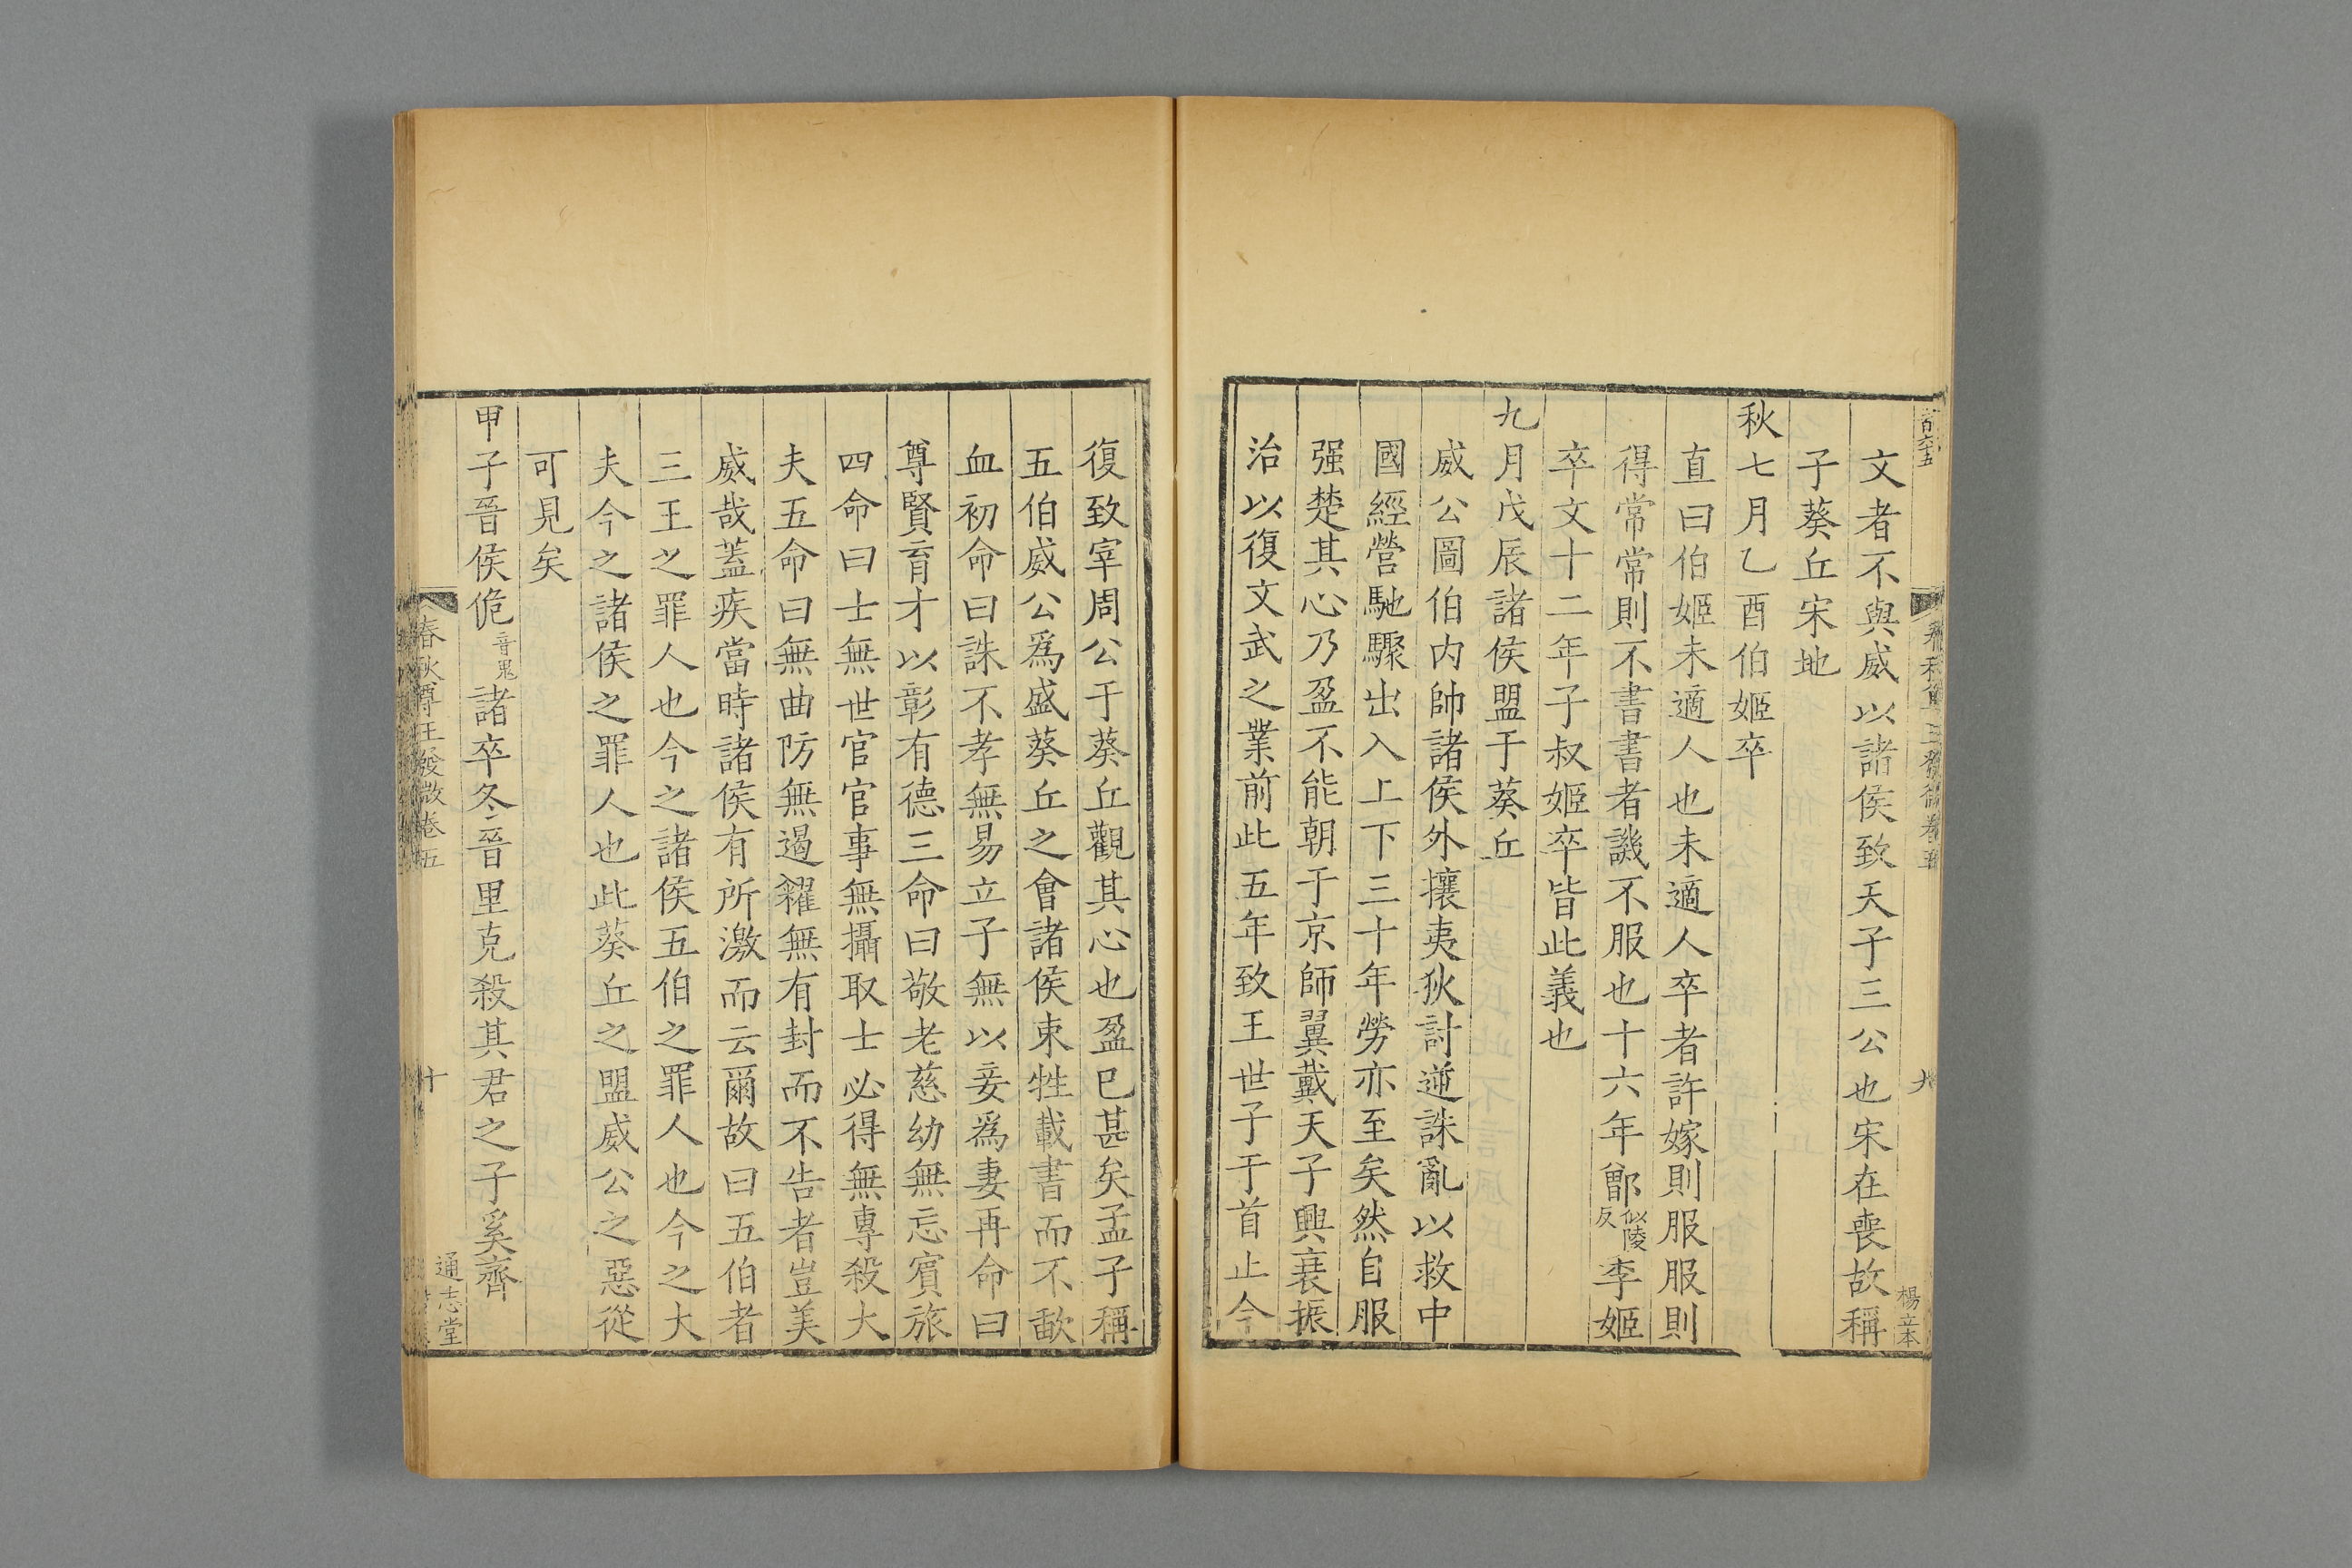 文者不與威以諸侯致天子三公也宋在喪故稱
子葵丘宋地
秋七月乙酉伯姬卒
直曰伯姬未適人也未適人卒者許嫁則服服則
得常常則不書書者譏不服也十六年鄫似陵反季姬
卒文十二年子叔姬卒皆此義也
九月戊辰諸侯盟于葵丘
威公圖伯内帥諸侯外攘夷狄討逆誅亂以救中
國經營馳驟出入上下三十年勞亦至矣然自服
强楚其心乃盈不能朝于京師翼戴天子興衰振
治以復文武之業前此五年致王世子于首止今
復致宰周公于葵丘觀其心也盈已甚矣孟子稱
五伯威公爲盛葵丘之會諸侯束牲載書而不歃
血初命曰誅不孝無易立子無以妾爲妻再命曰
尊賢育才以彰有德三命曰敬老慈幼無忘賓旅
四命曰士無世官官事無攝取士必得無專殺大
夫五命曰無曲防無遏糴無有封而不告者豈美
威哉蓋疾當時諸侯有所激而云爾故曰五伯者
三王之罪人也今之諸侯五伯之罪人也今之大
夫今之諸侯之罪人也此葵丘之盟威公之惡從
可見矣
甲子晉侯佹音鬼諸卒冬晉里克殺其君之子奚齊
春秋尊王發微卷五
十
通志堂
九
楊立本